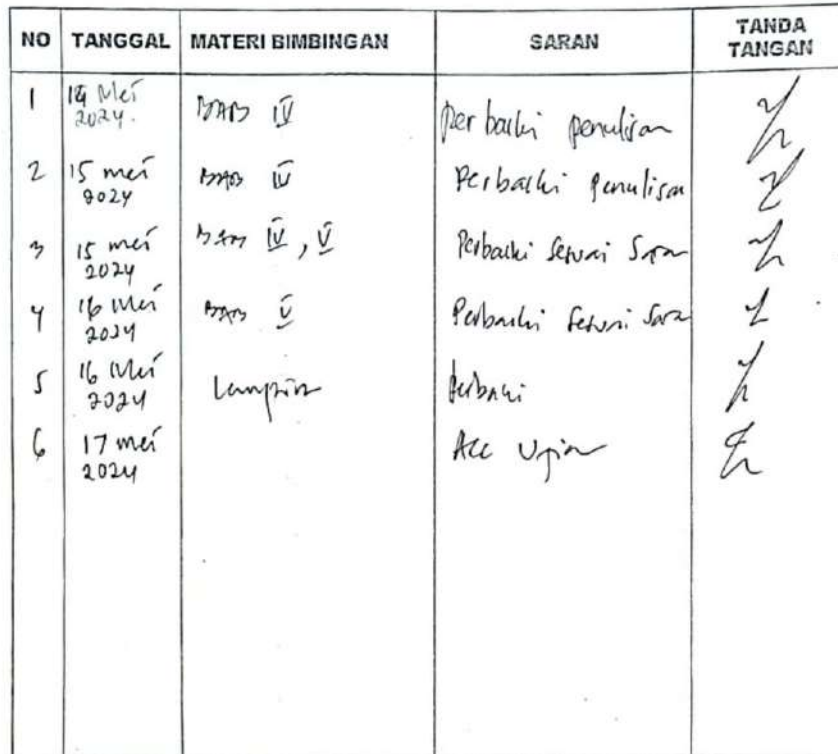 NO TANGGAL MATERI BIMBINGAN SARAN TANDA TANGAN
1 14 Mei 2024. BAB IV Perbaiki penulisan
2 15 mei 2024 BAB IV Perbaiki Penulisan
3 15 mei 2024 BAB IV, V Perbaiki Sesuai Saran
4 16 Mei 2024 BAB V Perbaiki Sesuai Saran
5 16 Mei 2024 Lampiran Perbaiki
6 17 mei 2024 Acc Ujian